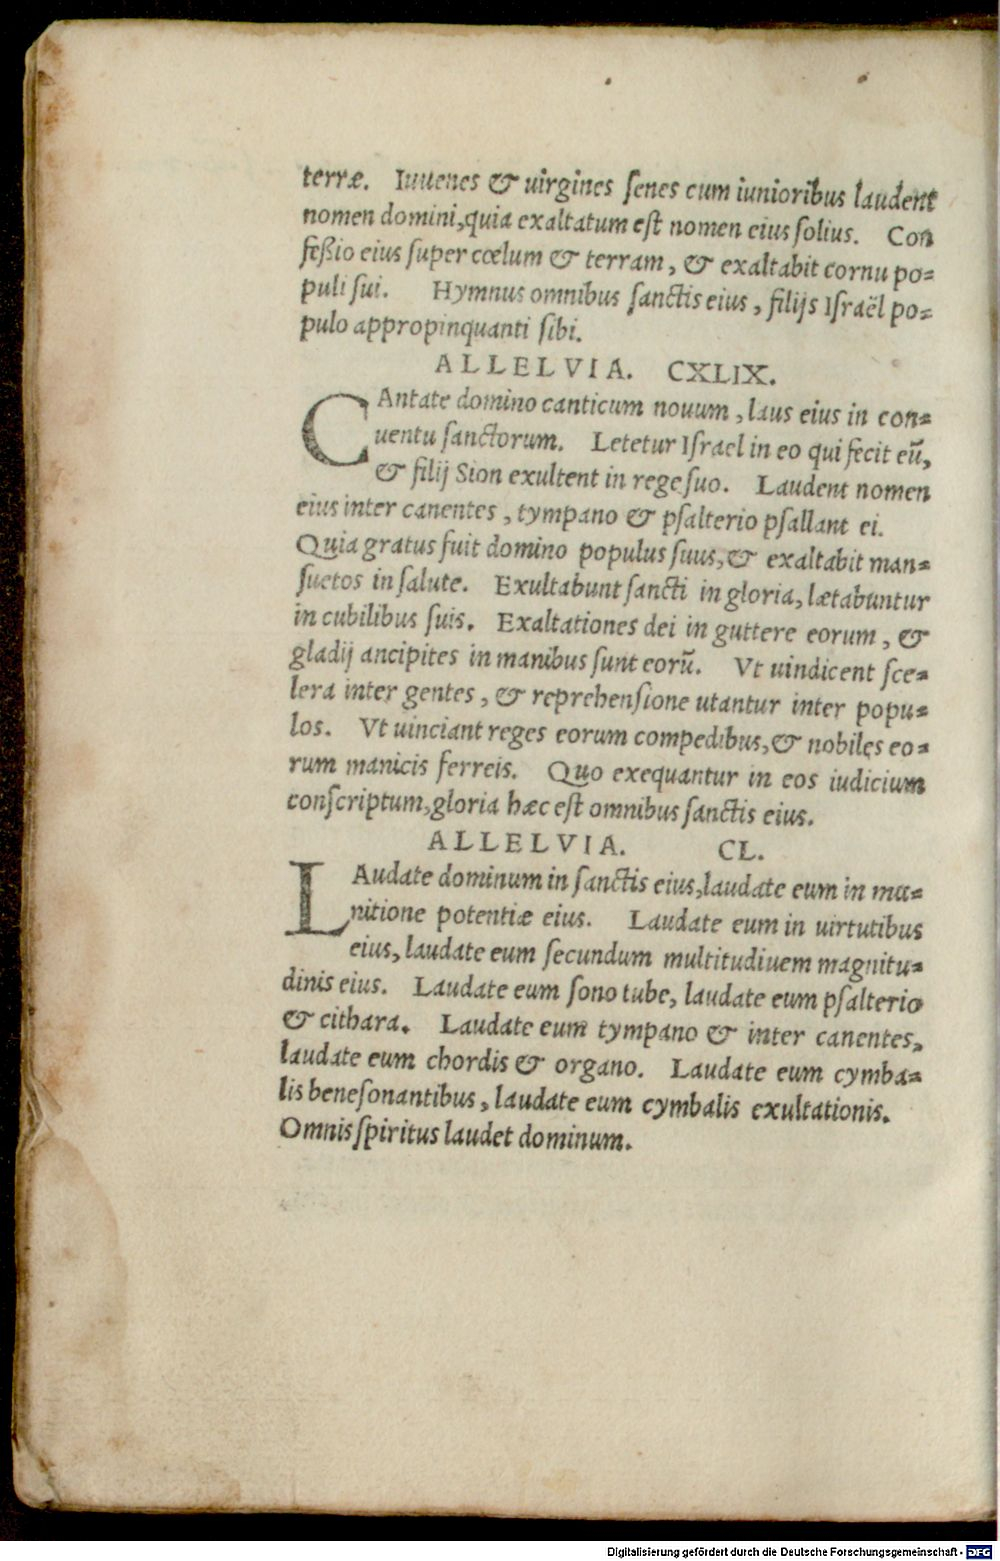 terræ. Iuuenes & uirgines ſenes cum iunioribus laudent
nomen domini, quia exaltatum eſt nomen eius ſolius. Con
feßio eius ſuper cœlum & terram, & exaltabit cornu po=
puli ſui. Hymnus omnibus ſanctis eius, filijs Iſraël po=
pulo appropinquanti ſibi.
ALLELVIA. CXLIX.
CAntate domino canticum nouum, laus eius in con=
uentu ſanctorum. Letetur Iſrael in eo qui fecit eū,
& filij Sion exultent in rege ſuo. Laudent nomen
eius inter canentes, tympano & pſalterio pſallant ei.
Quia gratus fuit domino populus ſuus, & exaltabit man=
ſuetos in ſalute. Exultabunt ſancti in gloria, lætabuntur
in cubilibus ſuis. Exaltationes dei in guttere eorum, &
gladij ancipites in manibus ſunt eorū. Vt uindicent ſce=
lera inter gentes, & reprehenſione utantur inter popu=
los. Vt uinciant reges eorum compedibus, & nobiles eo=
rum manicis ferreis. Quo exequantur in eos iudicium
conſcriptum, gloria hæc eſt omnibus ſanctis eius.
ALLELVIA. CL.
LAudate dominum in ſanctis eius, laudate eum in mu=
nitione potentiæ eius. Laudate eum in uirtutibus
eius, laudate eum ſecundum multitudiuem magnitu=
dinis eius. Laudate eum ſono tube, laudate eum pſalterio
& cithara. Laudate eum tympano & inter canentes,
laudate eum chordis & organo. Laudate eum cymba=
lis beneſonantibus, laudate eum cymbalis exultationis.
Omnis ſpiritus laudet dominum.
Digitalisierung gefördert durch die Deutsche Forschungsgemeinschaft - DFG